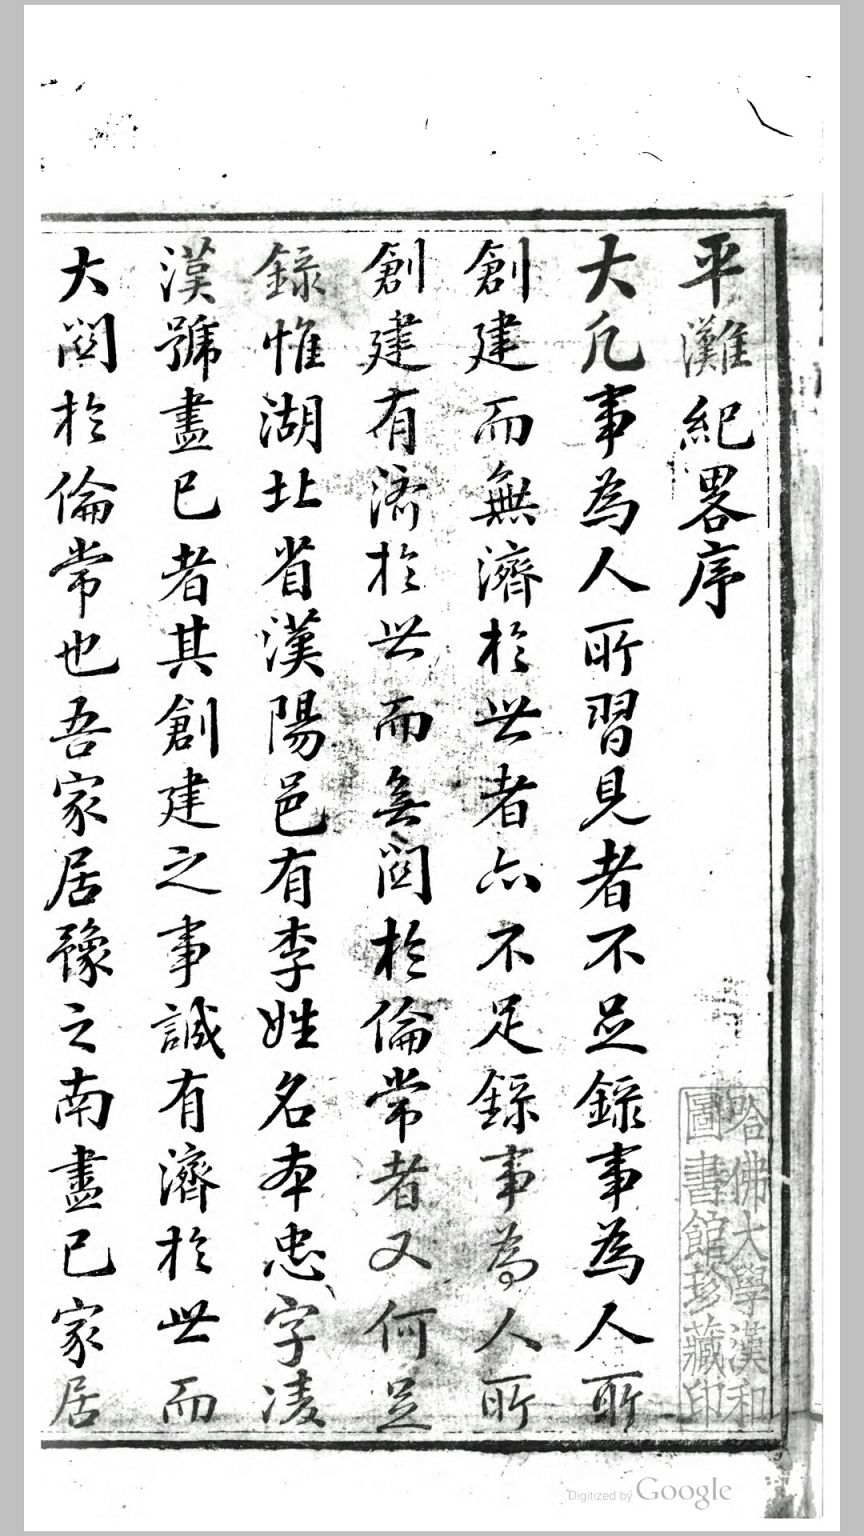 平灘紀畧序
大凡事為人所習見者不足錄事為人所
創建而無濟於世者亦不足錄事為人所
創建有济於世而無關於倫常者又何足
錄惟湖北省漢陽邑有李姓名本忠字凌
漢號盡已者其創建之事誠有濟於世而
大關於倫常也吾家居豫之南盡已家居
哈佛大學漢和
圖書館珍藏印
Digitized by Google